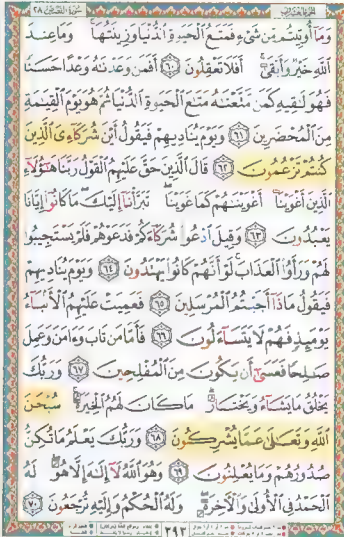 سورة القصص ٢٨
وَمَا أُوتِيتُم مِّن شَىْءٍ فَمَتَـٰعُ الْحَيَوٰةِ الدُّنْيَا وَزِينَتُهَا ۚ وَمَا عِندَ
اللَّهِ خَيْرٌ وَأَبْقَىٰٓ ۚ أَفَلَا تَعْقِلُونَ ﴿٦٠﴾ أَفَمَن وَعَدْنَـٰهُ وَعْدًا حَسَنًا
فَهُوَ لَـٰقِيهِ كَمَن مَّتَّعْنَـٰهُ مَتَـٰعَ الْحَيَوٰةِ الدُّنْيَا ثُمَّ هُوَ يَوْمَ الْقِيَـٰمَةِ
مِنَ الْمُحْضَرِينَ ﴿٦١﴾ وَيَوْمَ يُنَادِيهِمْ فَيَقُولُ أَيْنَ شُرَكَآءِىَ الَّذِينَ
كُنتُمْ تَزْعُمُونَ ﴿٦٢﴾ قَالَ الَّذِينَ حَقَّ عَلَيْهِمُ الْقَوْلُ رَبَّنَا هَـٰٓؤُلَآءِ
الَّذِينَ أَغْوَيْنَآ أَغْوَيْنَـٰهُمْ كَمَا غَوَيْنَا ۖ تَبَرَّأْنَآ إِلَيْكَ ۖ مَا كَانُوٓا۟ إِيَّانَا
يَعْبُدُونَ ﴿٦٣﴾ وَقِيلَ ادْعُوا۟ شُرَكَآءَكُمْ فَدَعَوْهُمْ فَلَمْ يَسْتَجِيبُوا۟
لَهُمْ وَرَأَوُا۟ الْعَذَابَ ۚ لَوْ أَنَّهُمْ كَانُوا۟ يَهْتَدُونَ ﴿٦٤﴾ وَيَوْمَ يُنَادِيهِمْ
فَيَقُولُ مَاذَآ أَجَبْتُمُ الْمُرْسَلِينَ ﴿٦٥﴾ فَعَمِيَتْ عَلَيْهِمُ الْأَنۢبَآءُ
يَوْمَئِذٍ فَهُمْ لَا يَتَسَآءَلُونَ ﴿٦٦﴾ فَأَمَّا مَن تَابَ وَءَامَنَ وَعَمِلَ
صَـٰلِحًا فَعَسَىٰٓ أَن يَكُونَ مِنَ الْمُفْلِحِينَ ﴿٦٧﴾ وَرَبُّكَ
يَخْلُقُ مَا يَشَآءُ وَيَخْتَارُ ۗ مَا كَانَ لَهُمُ الْخِيَرَةُ ۚ سُبْحَـٰنَ
اللَّهِ وَتَعَـٰلَىٰ عَمَّا يُشْرِكُونَ ﴿٦٨﴾ وَرَبُّكَ يَعْلَمُ مَا تُكِنُّ
صُدُورُهُمْ وَمَا يُعْلِنُونَ ﴿٦٩﴾ وَهُوَ اللَّهُ لَآ إِلَـٰهَ إِلَّا هُوَ ۖ لَهُ
الْحَمْدُ فِى الْأُولَىٰ وَالْـَٔاخِرَةِ ۖ وَلَهُ الْحُكْمُ وَإِلَيْهِ تُرْجَعُونَ ﴿٧٠﴾
٣٩٣